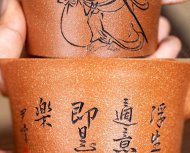 浮生
適意
即是
樂